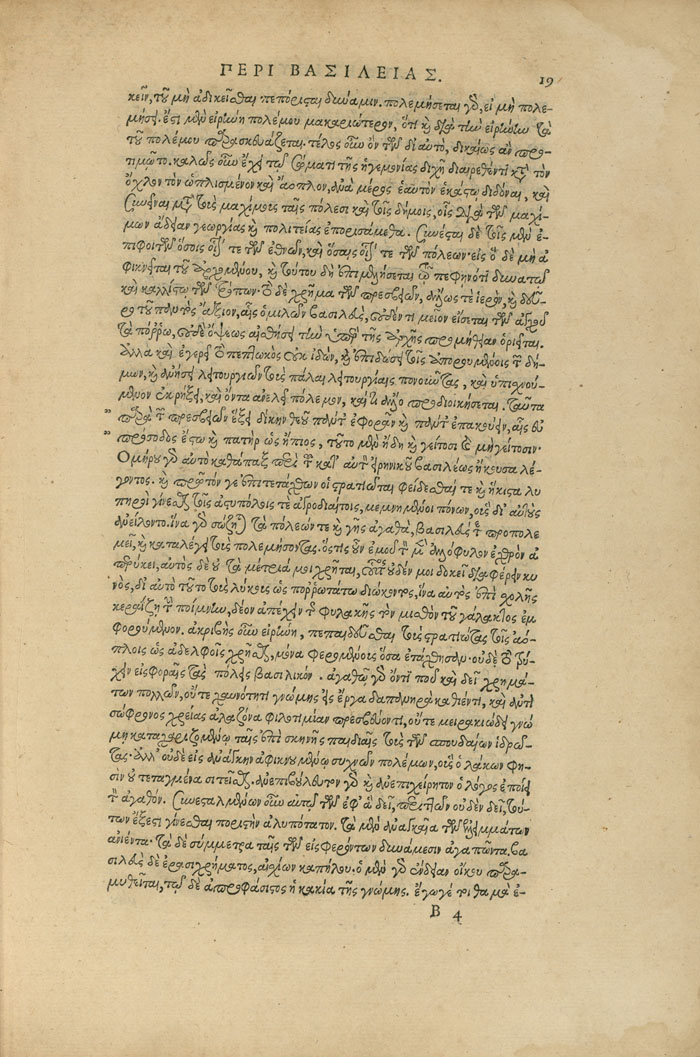 ΠΕΡΙ ΒΑΣΙΛΕΙΑΣ. 19
κεῖν, τοῦ μὴ ἀδικεῖσθαι πεπόρισται δύναμιν. πολεμήσεται γὰρ, εἰ μὴ πολε-
μήσῃ. ἔστι μὲν εἰρήνη πολέμου μακαριώτερον, ὅτι καὶ διὰ τὴν εἰρήνην τὰ
τοῦ πολέμου παρασκευάζεται. τέλος οὖν ὂν τῶν δι' αὐτὸ, δικαίως ἂν προ-
τιμῷτο. καλῶς οὖν ἔχει τῷ σώματι τῆς ἡγεμονίας διχῆ διαιρεθέντι κατὰ τὸν
ὄχλον τὸν ὡπλισμένον καὶ ἄοπλον, ἀνὰ μέρος ἑαυτὸν ἑκάστῳ διδόναι, καὶ
συνεῖναι μετὰ τοὺς μαχίμους ταῖς πόλεσι καὶ τοῖς δήμοις, οἷς διὰ τῶν μαχί-
μων ἄδειαν γεωργίας καὶ πολιτείας ἐπορισάμεθα. συνέσται δὲ τοῖς μὲν ἐ-
πιφοιτῶν ὅσοις οἷόν τε τῶν ἐθνῶν, καὶ ὅσαις οἷόν τε τῶν πόλεων· εἰς ὃ δὲ μὴ ἀ
φικνῆται τοῦ ἀρχομένου, καὶ τούτου δὴ ἐπιμελήσεται ᾧ πεφηνότι δυνατῷ
καὶ καλλίστῳ τῶν τρόπων. τὸ δὲ χρῆμα τῶν πρεσβειῶν, ἄλλως τε ἱερὸν, καὶ τού-
του παντὸς ἄξιον, αἷς ὁμιλῶν βασιλεὺς, οὐδέν τι μεῖον εἴσεται τῶν ἀγχοῦ
τὰ πόῤῥω, οὐδὲ ὄψεως αἰσθήσει τὴν ὑπὲρ τῆς ἀρχῆς προμήθειαν ὁριεῖται.
ἀλλὰ καὶ ἐγερεῖ τὸ πεπτωκὸς οὐκ ἰδὼν, καὶ ἐπιδώσει τοῖς ἀπορουμένοις τῶν δή-
μων, καὶ ἀνήσει λειτουργιῶν τοὺς πάλαι λειτουργίαις πονοῦντας, καὶ ὑπισχνού-
μενον ἐκρήξει, καὶ ὄντα ἀνελεῖ πόλεμον, καὶ τὰ ἄλλα προδιοικήσεται. ταῦτα
παρὰ τῶν πρεσβειῶν ἕξει δίκην θεοῦ πάντ' ἐφορᾶν καὶ πάντ' ἐπακούειν, αἷς εὐ
πρόσοδος ἔστω καὶ πατὴρ ὣς ἤπιος, τοῦτο μὲν ἤδη καὶ γείτοσι καὶ μὴ γείτοσιν·
Ὁμήρου γὰρ αὐτὸ καθάπαξ περὶ τοῦ κατ' αὐτὸν εἰρηνικοῦ βασιλέως ἤκουσα λέ-
γοντος. καὶ πρῶτόν γε ἐπιτετάχθων οἱ στρατιῶται φείδεσθαί τε καὶ ἥκιστα λυ
πηροὶ γίνεσθαι τοῖς ἀστυπόλοις τε ἀγροδιαίτοις, μεμνημένοι πόνων, οὓς δι' αὐτοὺς
ἀνείλοντο. ἵνα γὰρ σώζηται τὰ πόλεών τε καὶ γῆς ἀγαθὰ, βασιλεύς τε προπολε
μεῖ, καὶ καταλέγει τοὺς πολεμήσοντας. ὅστις οὖν ἐμοὶ τὸν μὲν ἀλλόφυλον ἐχθρὸν ἀ
περύκει, αὐτὸς δὲ οὐ τὰ μέτριά μοι χρῆται, οὗτος οὐδέν μοι δοκεῖ διαφέρειν κυ
νὸς, δι' αὐτὸ τοῦτο τοὺς λύκους ὡς ποῤῥωτάτω διώκοντος, ἵνα αὐτὸς ἐπὶ σχολῆς
κεραΐζῃ τὴν ποίμνην, δέον ἀπέχειν τῆς φυλακῆς τὸν μισθὸν τοῦ γάλακτος ἐμ
φορούμενον. ἀκριβὴς οὖν εἰρήνη, πεπαιδεῦσθαι τοὺς στρατιώτας τοῖς ἀό-
πλοις ὡς ἀδελφοῖς χρῆσθαι, μόνα φερομένους ὅσα ἐτάχθησαν. οὐδὲ τὸ τρύ-
χειν εἰσφοραῖς τὰς πόλεις βασιλικόν. ἀγαθῷ γὰρ ὄντι ποῦ καὶ δεῖ χρημά-
των πολλῶν, οὔτε χαυνότητι γνώμης εἰς ἔργα δαπανηρὰ καθιέντι, καὶ ἀντὶ
σώφρονος χρείας ἀλαζόνα φιλοτιμίαν πρεσβεύοντι, οὔτε μειρακιώδει γνώ
μῃ καταχαριζομένῳ ταῖς ἐπὶ σκηνῆς παιδιαῖς τοὺς τῶν σπουδαίων ἱδρῶ-
τας. ἀλλ' οὐδὲ εἰς ἀνάγκην ἀφικνουμένῳ συχνῶν πολέμων, οὓς ὁ Λάκων φη-
σὶν οὐ τεταγμένα σιτεῖσθαι. ἀνεπιβούλευτον γὰρ καὶ ἀνεπιχείρητον ὁ λόγος ἐποίει
τὸν ἀγαθόν. συνεσταλμένων οὖν αὐτῷ τῶν ἐφ' ἃ δεῖ, περιττῶν οὐδὲν δεῖ, τού-
των ἔξεστι γίνεσθαι ποριστὴν ἀλυπότατον. τὰ μὲν ἀναγκαῖα τῶν ἐλλειμμάτων
ἀνιέντα. τὰ δὲ σύμμετρα ταῖς τῶν εἰσφερόντων δυνάμεσιν ἀγαπῶντα, βα
σιλεὺς δὲ ἐρασιχρήματος, αἰσχίων καπήλου. ὁ μὲν γὰρ ἔνδειαν οἴκου παρα-
μυθεῖται, τῷ δὲ ἀπροφάσιστος ἡ κακία τῆς γνώμης. ἔγωγέ τοι θαμὰ ἐ-
B 4